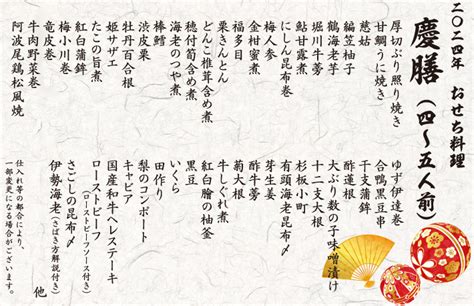 二〇二四年　おせち料理
慶膳（四〜五人前）
厚切ぶり照り焼き
甘鯛うに焼き
慈姑
編笠柚子
鶴海老芋
堀川牛蒡
鮎甘露煮
にしん昆布巻
梅人参
金柑蜜煮
福多目
栗きんとん
どんこ椎茸含め煮
穂付筍含め煮
海老のつや煮
棒鱈
渋皮栗
牡丹百合根
姫サザエ
たこの旨煮
紅白蒲鉾
梅小川巻
竜皮巻
牛肉野菜巻
阿波尾鶏松風焼
ゆず伊達巻
合鴨黒豆串
干支蒲鉾
酢蓮根
大ぶり数の子味噌漬け
十二支大根
杉板小町
有頭海老昆布〆
芽生姜
酢牛蒡
牛しぐれ煮
紅白膾の柚釜
黒豆
いくら
田作り
梨のコンポート
キャビア
国産和牛ヘレステーキ
ローストビーフ
（ローストビーフソース付き）
さごしの昆布〆
伊勢海老（さばき方解説付き）
他
仕入れ等の都合により、
一部変更になる場合がございます。